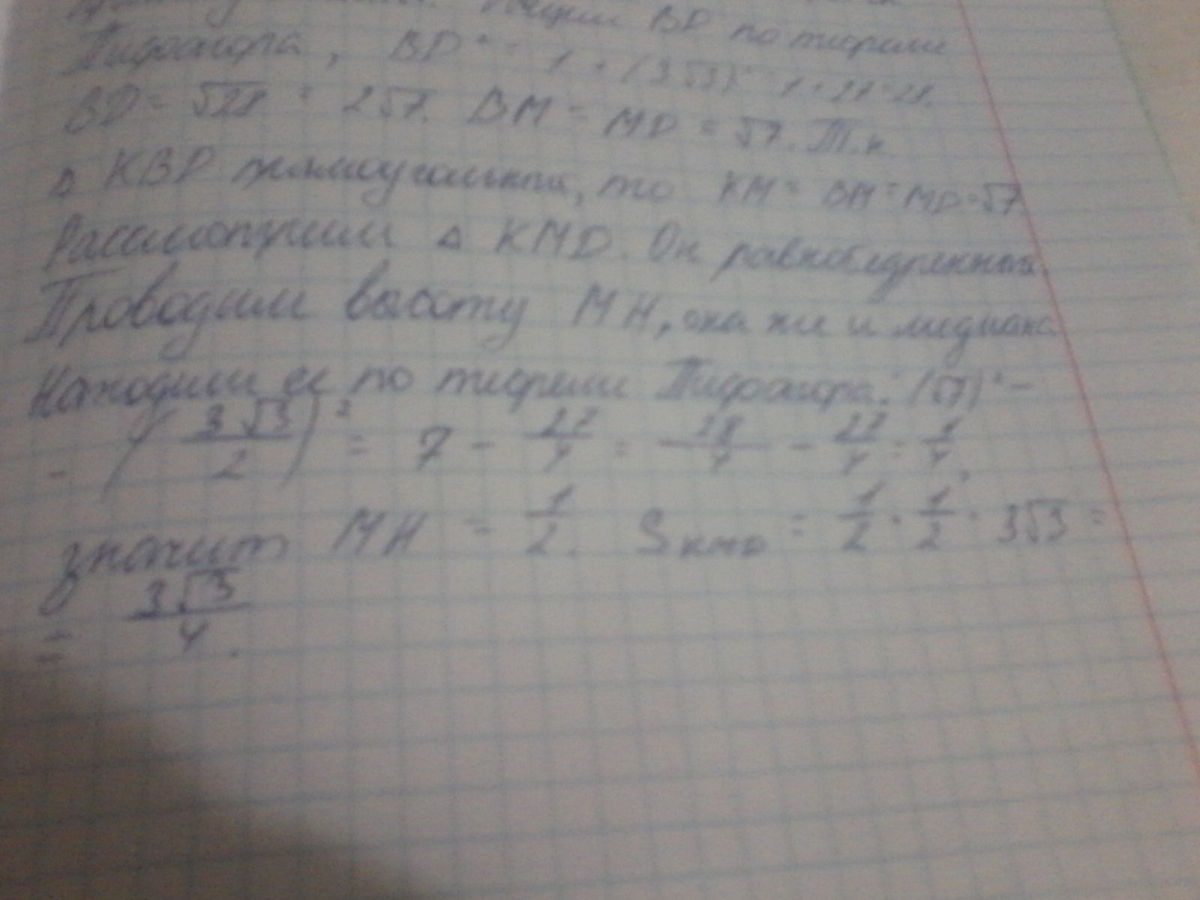 BD по теореме
Пифагора, BD² = 1 + (3√3)² = 1 + 27 = 28.
BD = √28 = 2√7. BM = MD = √7. Т.к
△ KBD прямоугольный, то KM = BM = MD = √7.
Рассмотрим △ KMD. Он равнобедренный.
Проводим высоту MH, она же и медиана
Находим ее по теореме Пифагора: (√7)² −
− (3√3/2)² = 7 − 27/4 = 28/4 − 27/4 = 1/4.
значит MH = 1/2. Sкмд = 1/2 · 1/2 · 3√3 =
= 3√3/4.